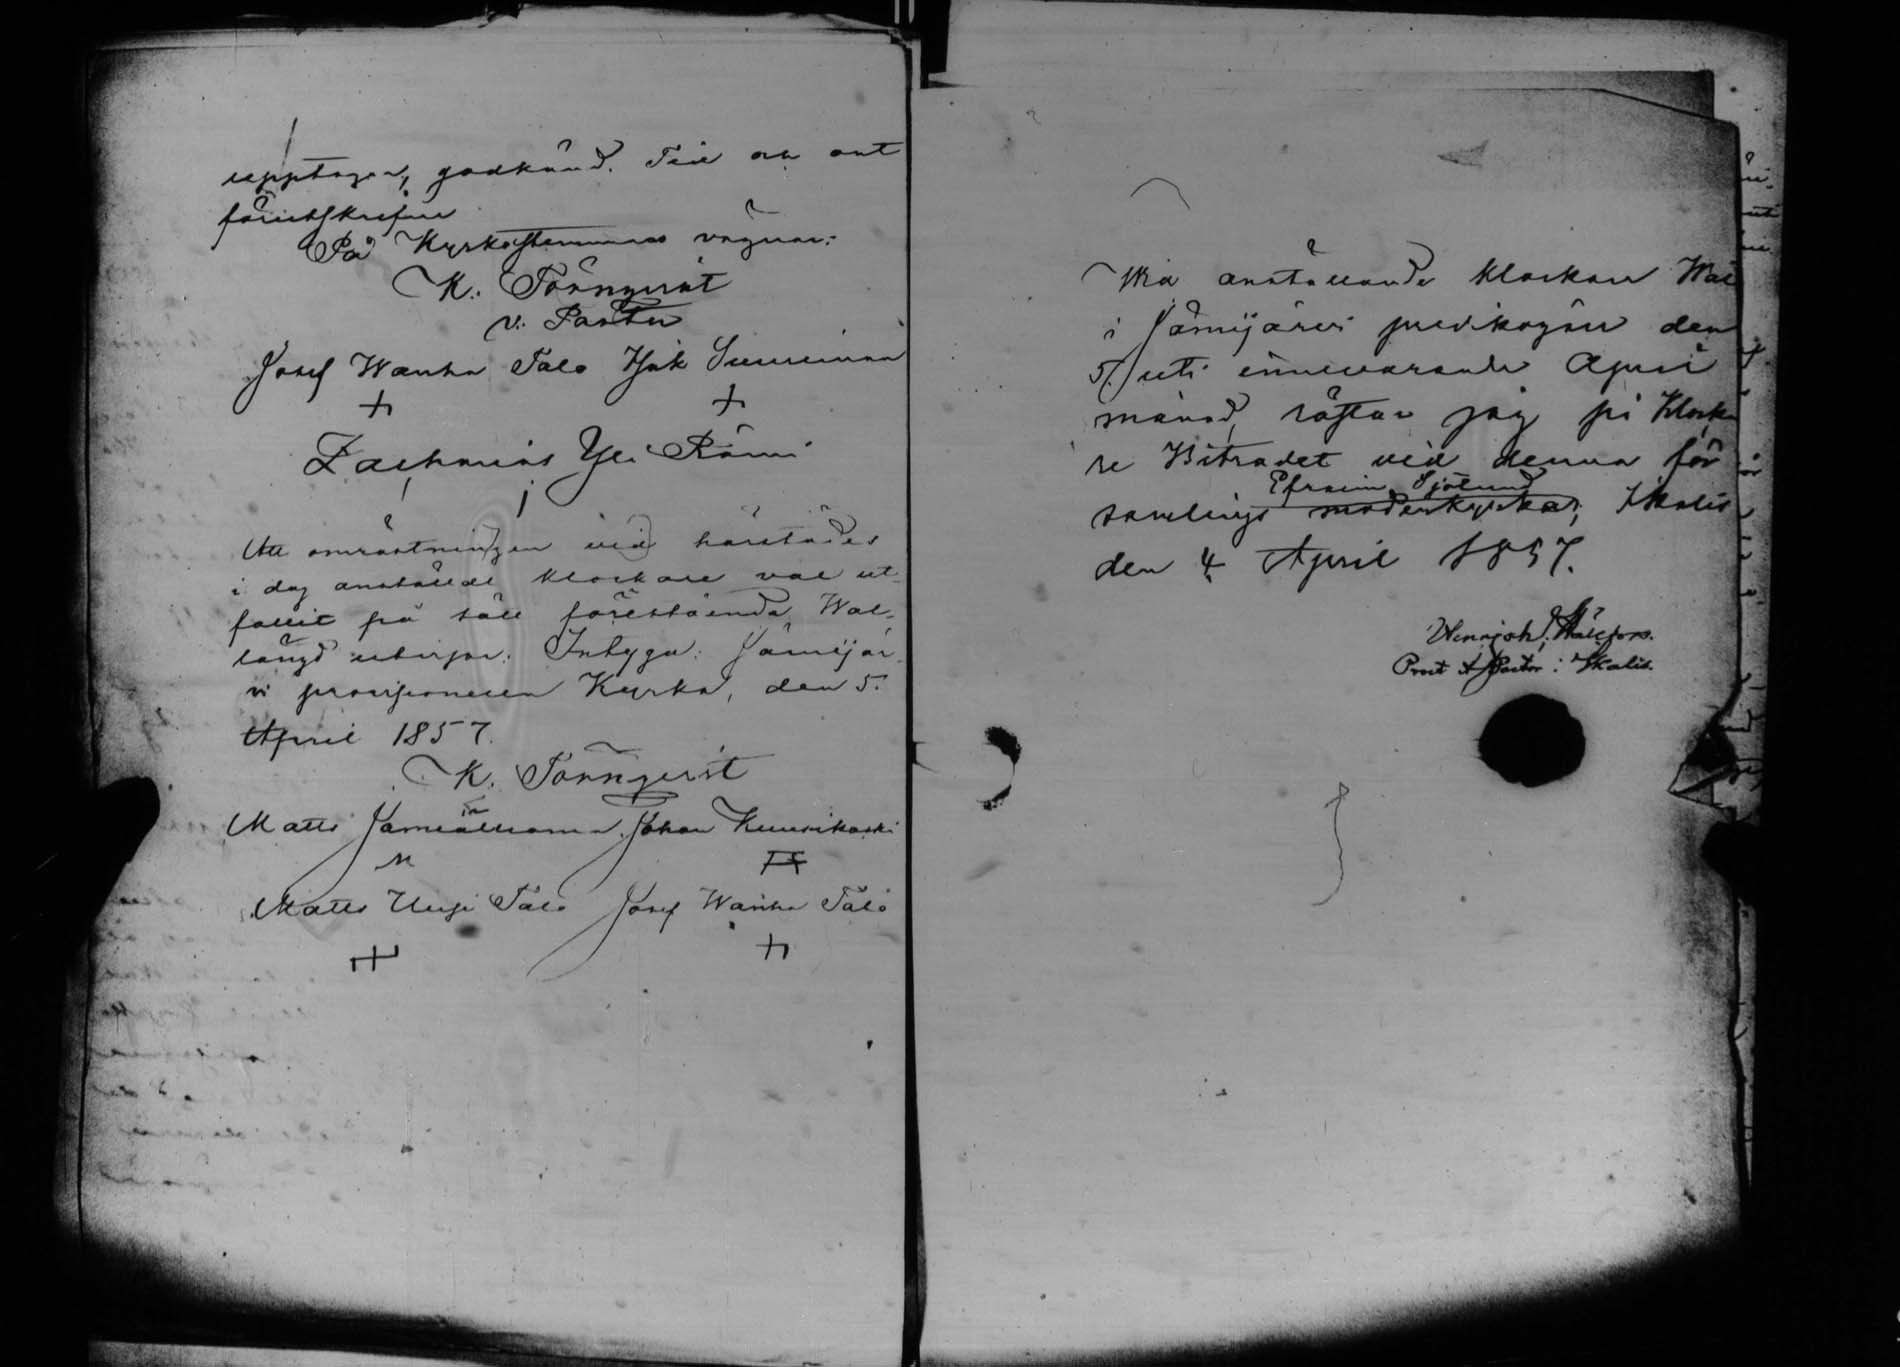 upptagen, godkänd. Tid och ort
förutskrefne
På Kyrkostemmans vägnar:
K. Törnqvist
v. Pastor
Josef Wanha Talo Isak Suurimaa
Zacharias Yli Rämi
Att omröstningen vid härstädes
i dag anstäldt klockare val ut-
fallit på sätt förestående Wal-
längd utvisar. Intyga: Jämijär-
vi provisionella Kyrka, den 5.
April 1857.
K. Törnqvist
Matts Johan Kuusikoski
Matts Uusi Talo Josef Wanha Talo
Wid anställande klockare Wal
i Jämijärvi predikogäll den
5. uti innevarande April
månad, röstar jag på Klocka
re Biträdet vid denna för
Efraim Sjölund
samlings moderkyrka, Ikalis
den 4 April 1857.
Prost & Pastor i Ikalis.